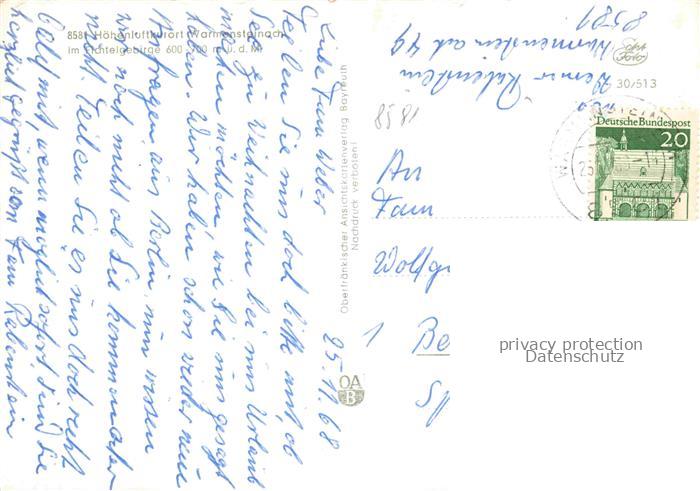 8581 Höhenluftkurort Warmensteinach
im Fichtelgebirge 600-700 m ü. d. M.
25. 11. 68
Liebe Fam Weber
Teilen Sie uns doch bitte mit, ob
Sie zu Weihnachten bei uns Urlaub
machen möchten, wie Sie uns gesagt
haben. Wir haben schon wieder neue
Anfragen aus Berlin, nun wissen
wir noch nicht ob Sie kommen oder
nicht. Teilen Sie es uns doch recht
bald mit, wenn möglich sofort, sind Sie
herzlich gegrüßt von Fam Rabenstein
Oberfränkischer Ansichtskartenverlag Bayreuth
Nachdruck verboten!
OA
B
Werner Rabenstein
Warmensteinach 49
8581
Echt
Foto
30/513
8581
Deutsche Bundespost
20
An
Fam
Wolfg
1 Be
privacy protection
Datenschutz